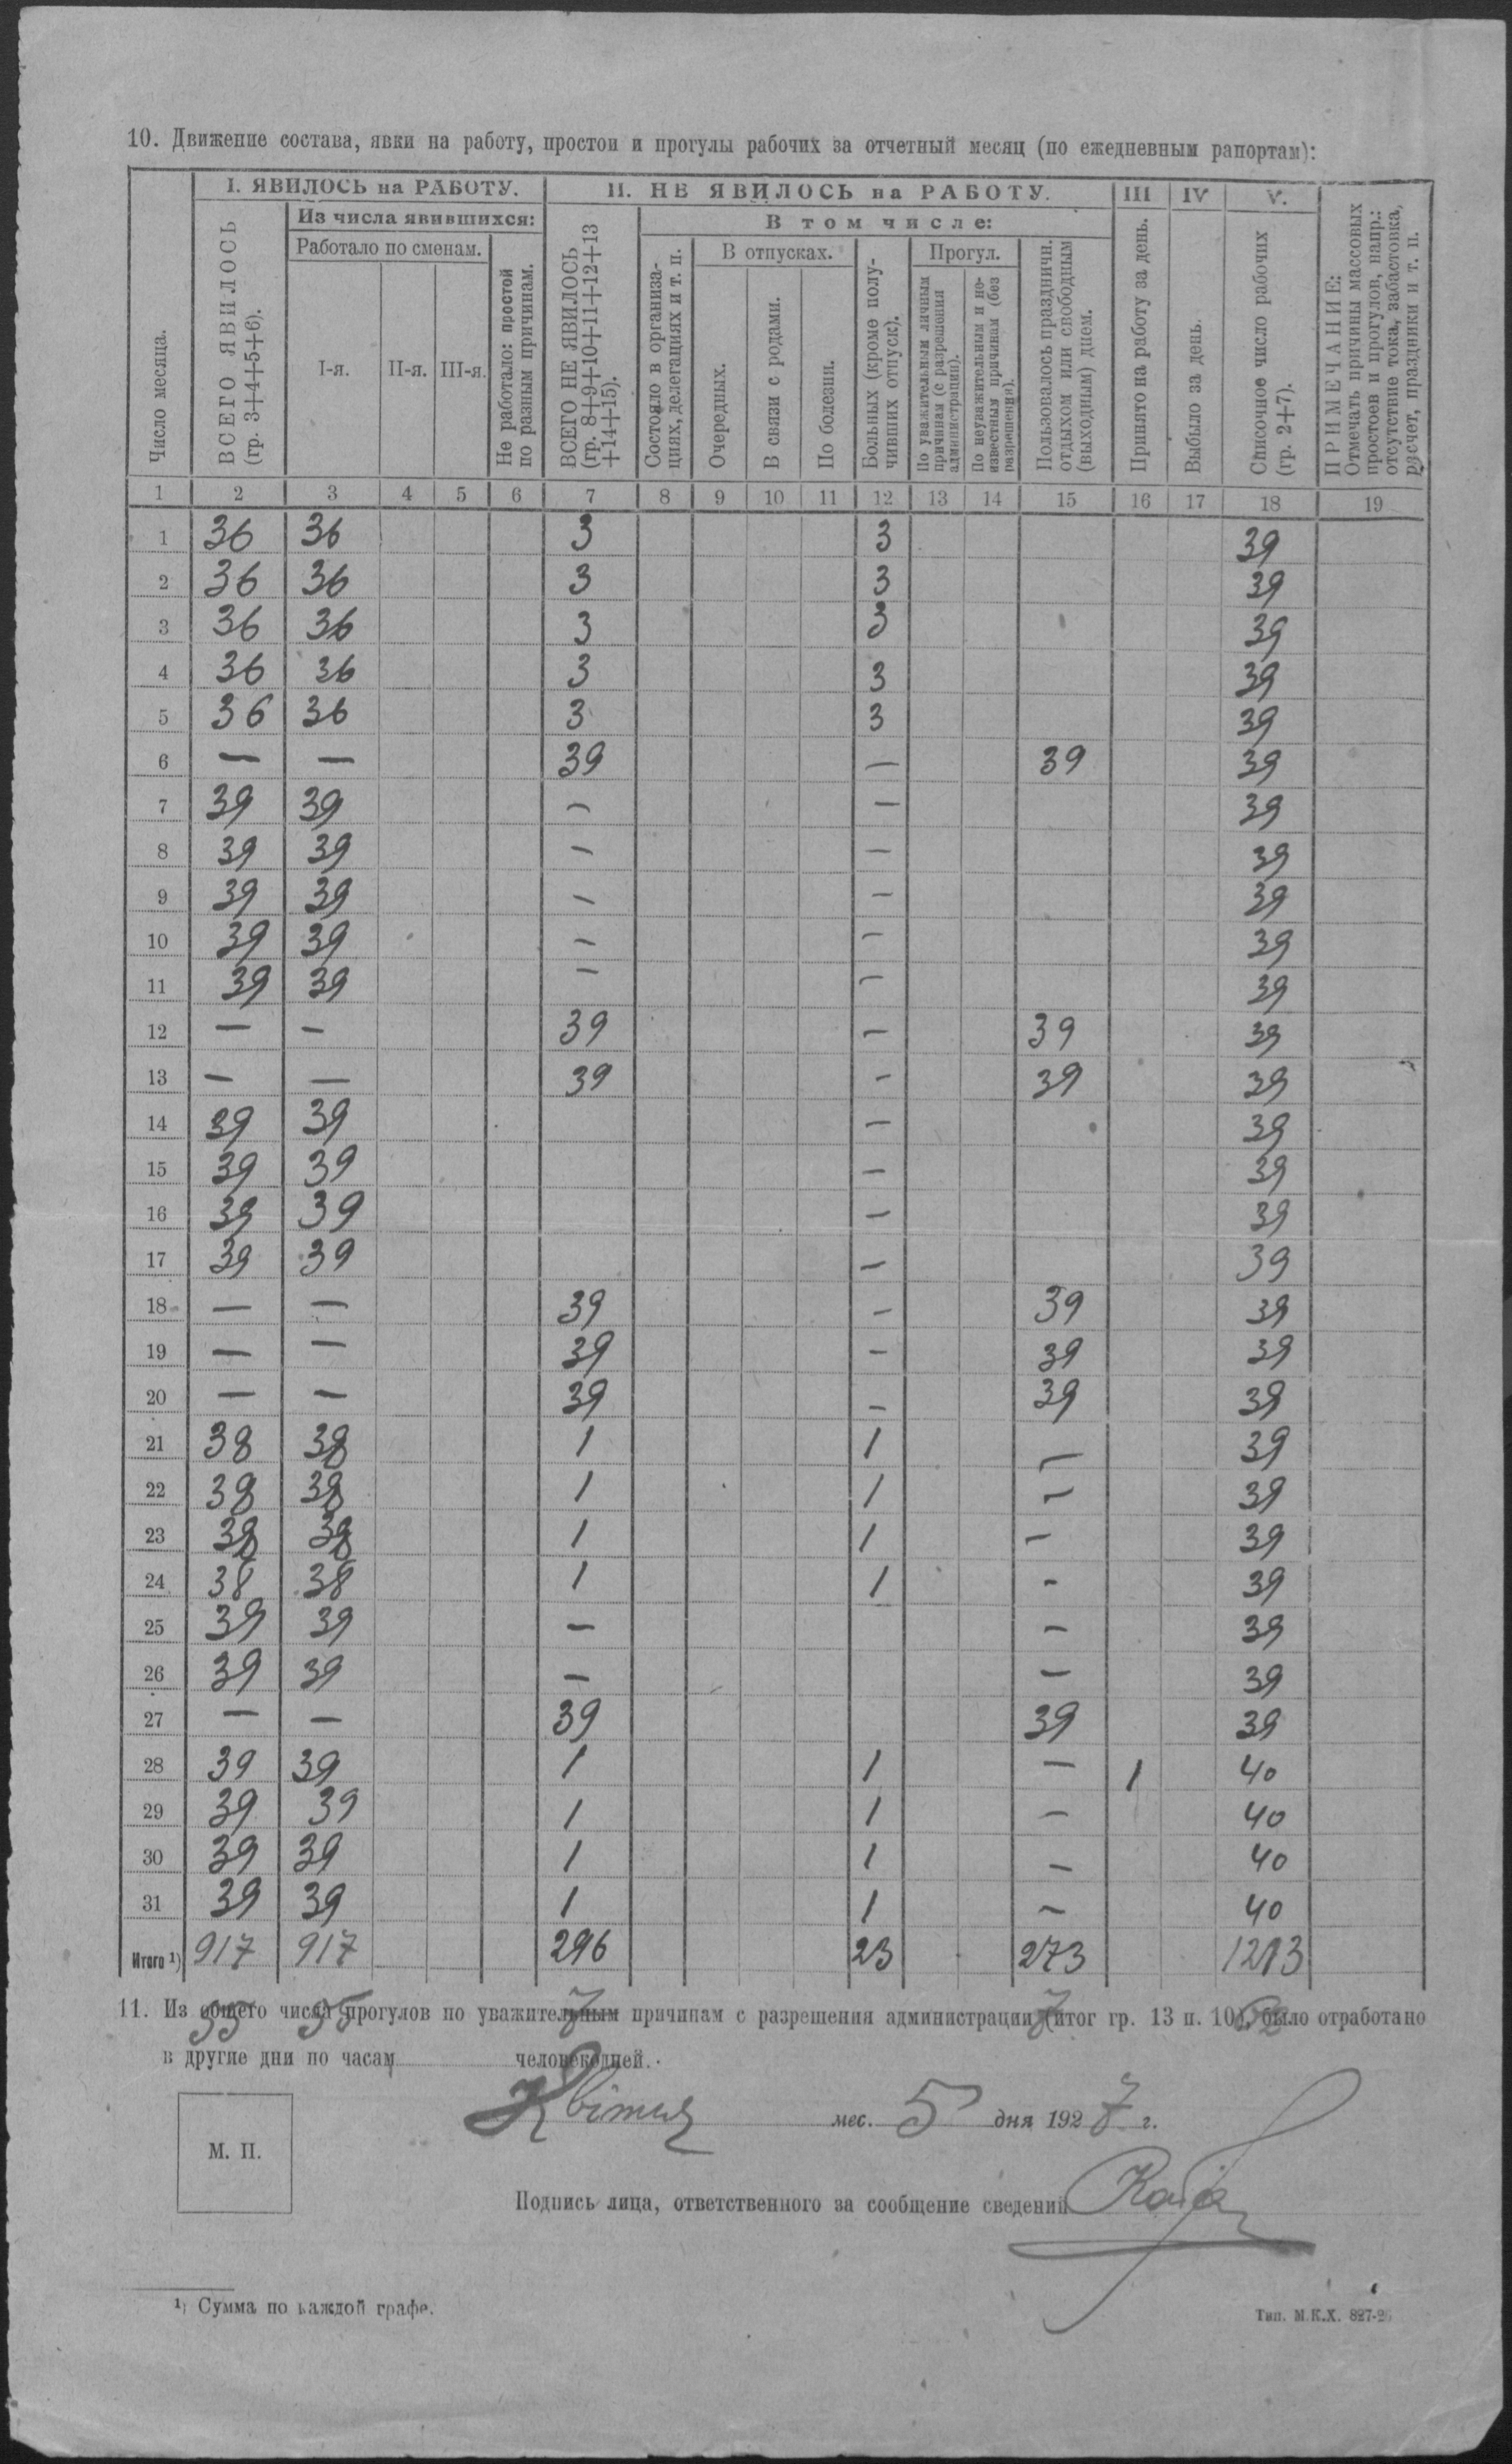 10. Движение состава, явки на работу, простои и прогулы рабочих за отчетный месяц (по ежедневным рапортам):
Число месяца.
I. ЯВИЛОСЬ на РАБОТУ.
ВСЕГО ЯВИЛОСЬ (гр. 3+4+5+6).
Из числа явившихся:
Работало по сменам.
I-я. II-я. III-я.
Не работало: простой по разным причинам.
II. НЕ ЯВИЛОСЬ на РАБОТУ.
ВСЕГО НЕ ЯВИЛОСЬ (гр. 8+9+10+11+12+13+14+15).
В том числе:
Состояло в организациях, делегациях и т. п.
В отпусках.
Очередных. В связи с родами. По болезни.
Больных (кроме получивших отпуск).
Прогул.
По уважительным личным причинам (с разрешения администрации).
По неуважительным и неизвестным причинам (без разрешения).
Пользовалось праздничн. отдыхом или свободным (выходным) днем.
III
Принято на работу за день.
IV
Выбыло за день.
V.
Списочное число рабочих (гр. 2+7).
ПРИМЕЧАНИЕ:
Отмечать причины массовых простоев и прогулов, напр.: отсутствие тока, забастовка, расчет, праздники и т. п.
1 2 3 4 5 6 7 8 9 10 11 12 13 14 15 16 17 18 19
1 36 36 3 3 39
2 36 36 3 3 39
3 36 36 3 3 39
4 36 36 3 3 39
5 36 36 3 3 39
6 — — 39 — 39 39
7 39 39 — — 39
8 39 39 — — 39
9 39 39 — — 39
10 39 39 — — 39
11 39 39 — — 39
12 — — 39 — 39 39
13 — — 39 — 39 39
14 39 39 — 39
15 39 39 — 39
16 39 39 — 39
17 39 39 — 39
18 — — 39 — 39 39
19 — — 39 — 39 39
20 — — 39 — 39 39
21 38 38 1 1 — 39
22 38 38 1 1 — 39
23 38 38 1 1 — 39
24 38 38 1 1 - 39
25 39 39 — — 39
26 39 39 — — 39
27 — — 39 39 39
28 39 39 1 1 — 1 40
29 39 39 1 1 — 40
30 39 39 1 1 — 40
31 39 39 1 1 — 40
Итого ¹) 917 917 296 23 273 1213
11. Из общего числа прогулов по уважительным причинам с разрешения администрации (итог гр. 13 п. 10), было отработано
в другие дни по часам человекодней.
мес. 5 дня 1927 г.
М. П.
Подпись лица, ответственного за сообщение сведений
¹) Сумма по каждой графе.
Тип. М.К.Х. 827-26